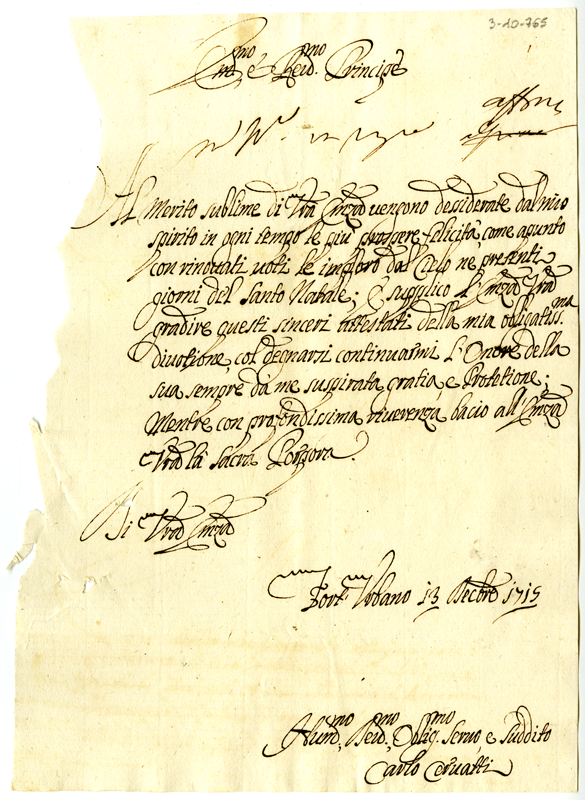 3-10-765
Em.mo e Reu.mo Principe
Al Merito sublime di Vra Emza uengono dessiderate dal mio
spirito in ogni tempo le più prospere felicità, come apunto
con rinouati uoti le imploro dal Cielo ne presenti
giorni del Santo Natale; e supplico l'Emza Vra
gradire questi sinceri attestati della mia obligatiss.ma
diuotione, col degnarsi continuarmi l'Onore della
sua sempre da me suspirata gratia, e Protetione;
Mentre con profondissima riuerenza bacio all'Emza
Vra la Sacra Porpora.
Di Vra Emza
Fort. Urbano 13 Decbre 1715
Hum.mo Deuo.mo Oblig.mo Seruo, e Suddito
Carlo Ceruatti